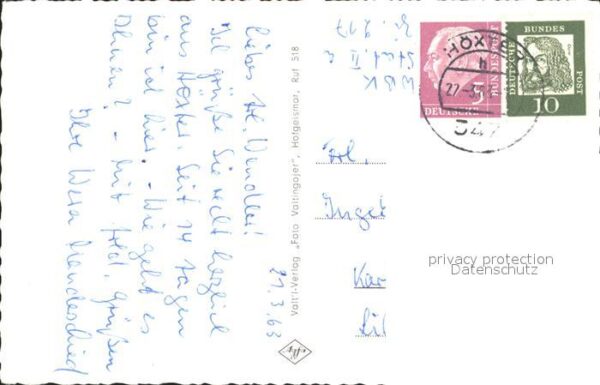 21.3.63
Liebes Frl. Wendler!
Ich grüße Sie recht herzlich
aus Höxter. Seit 14 Tagen
bin ich hier. - Wie geht es
Ihnen? - Mit frdl. Grüßen
Ihre Wera
Valt'l-Verlag „Foto Valtingojer", Hofgeismar, Ruf 518
Frl.
Inge
Kar
WBK
HÖX
27.-3.
347
5
DEUTSCHE
BUNDESPOST
DEUTSCHE
BUNDES
POST
10
privacy protection
Datenschutz